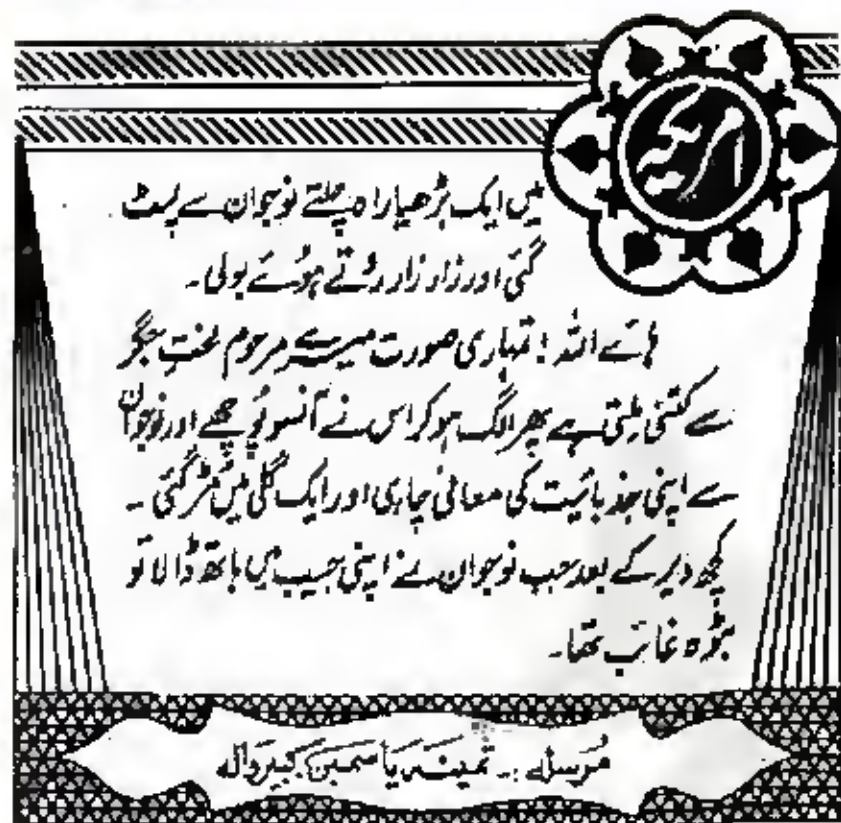 امریکہ
میں ایک بڑھیا راہ چلتے نوجوان سے لپٹ
گئی اور زار زار روتے ہوئے بولی۔
ہائے اللہ! تمہاری صورت میرے مرحوم لختِ جگر
سے کتنی ملتی ہے پھر الگ ہو کر اس نے آنسو پونچھے اور نوجوان
سے اپنی جذباتیت کی معافی چاہی اور ایک گلی میں مڑ گئی۔
کچھ دیر کے بعد جب نوجوان نے اپنی جیب میں ہاتھ ڈالا تو
بٹوہ غائب تھا۔
مُرسلہ:۔ ثمینہ یاسمین کبیروالہ